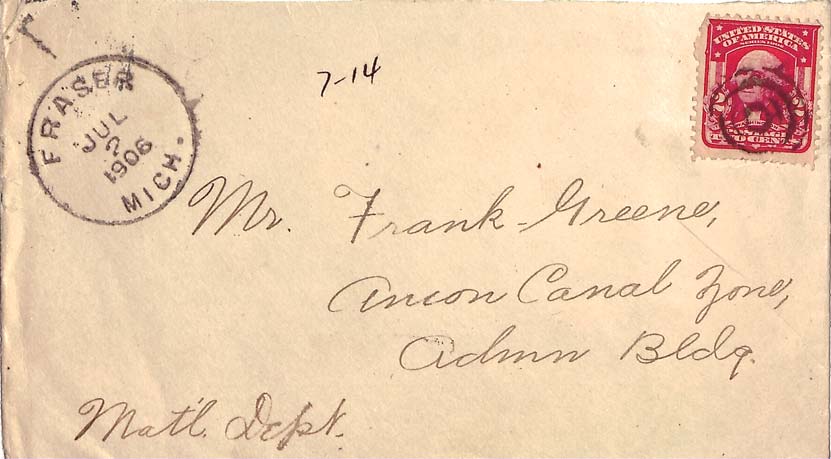 FRASER
JUL
2
1906
MICH.
7-14
UNITED STATES
OF AMERICA
TWO CENTS
Mr. Frank Greene,
Ancon Canal Zone,
Admn Bldg.
Mat'l. Dept.